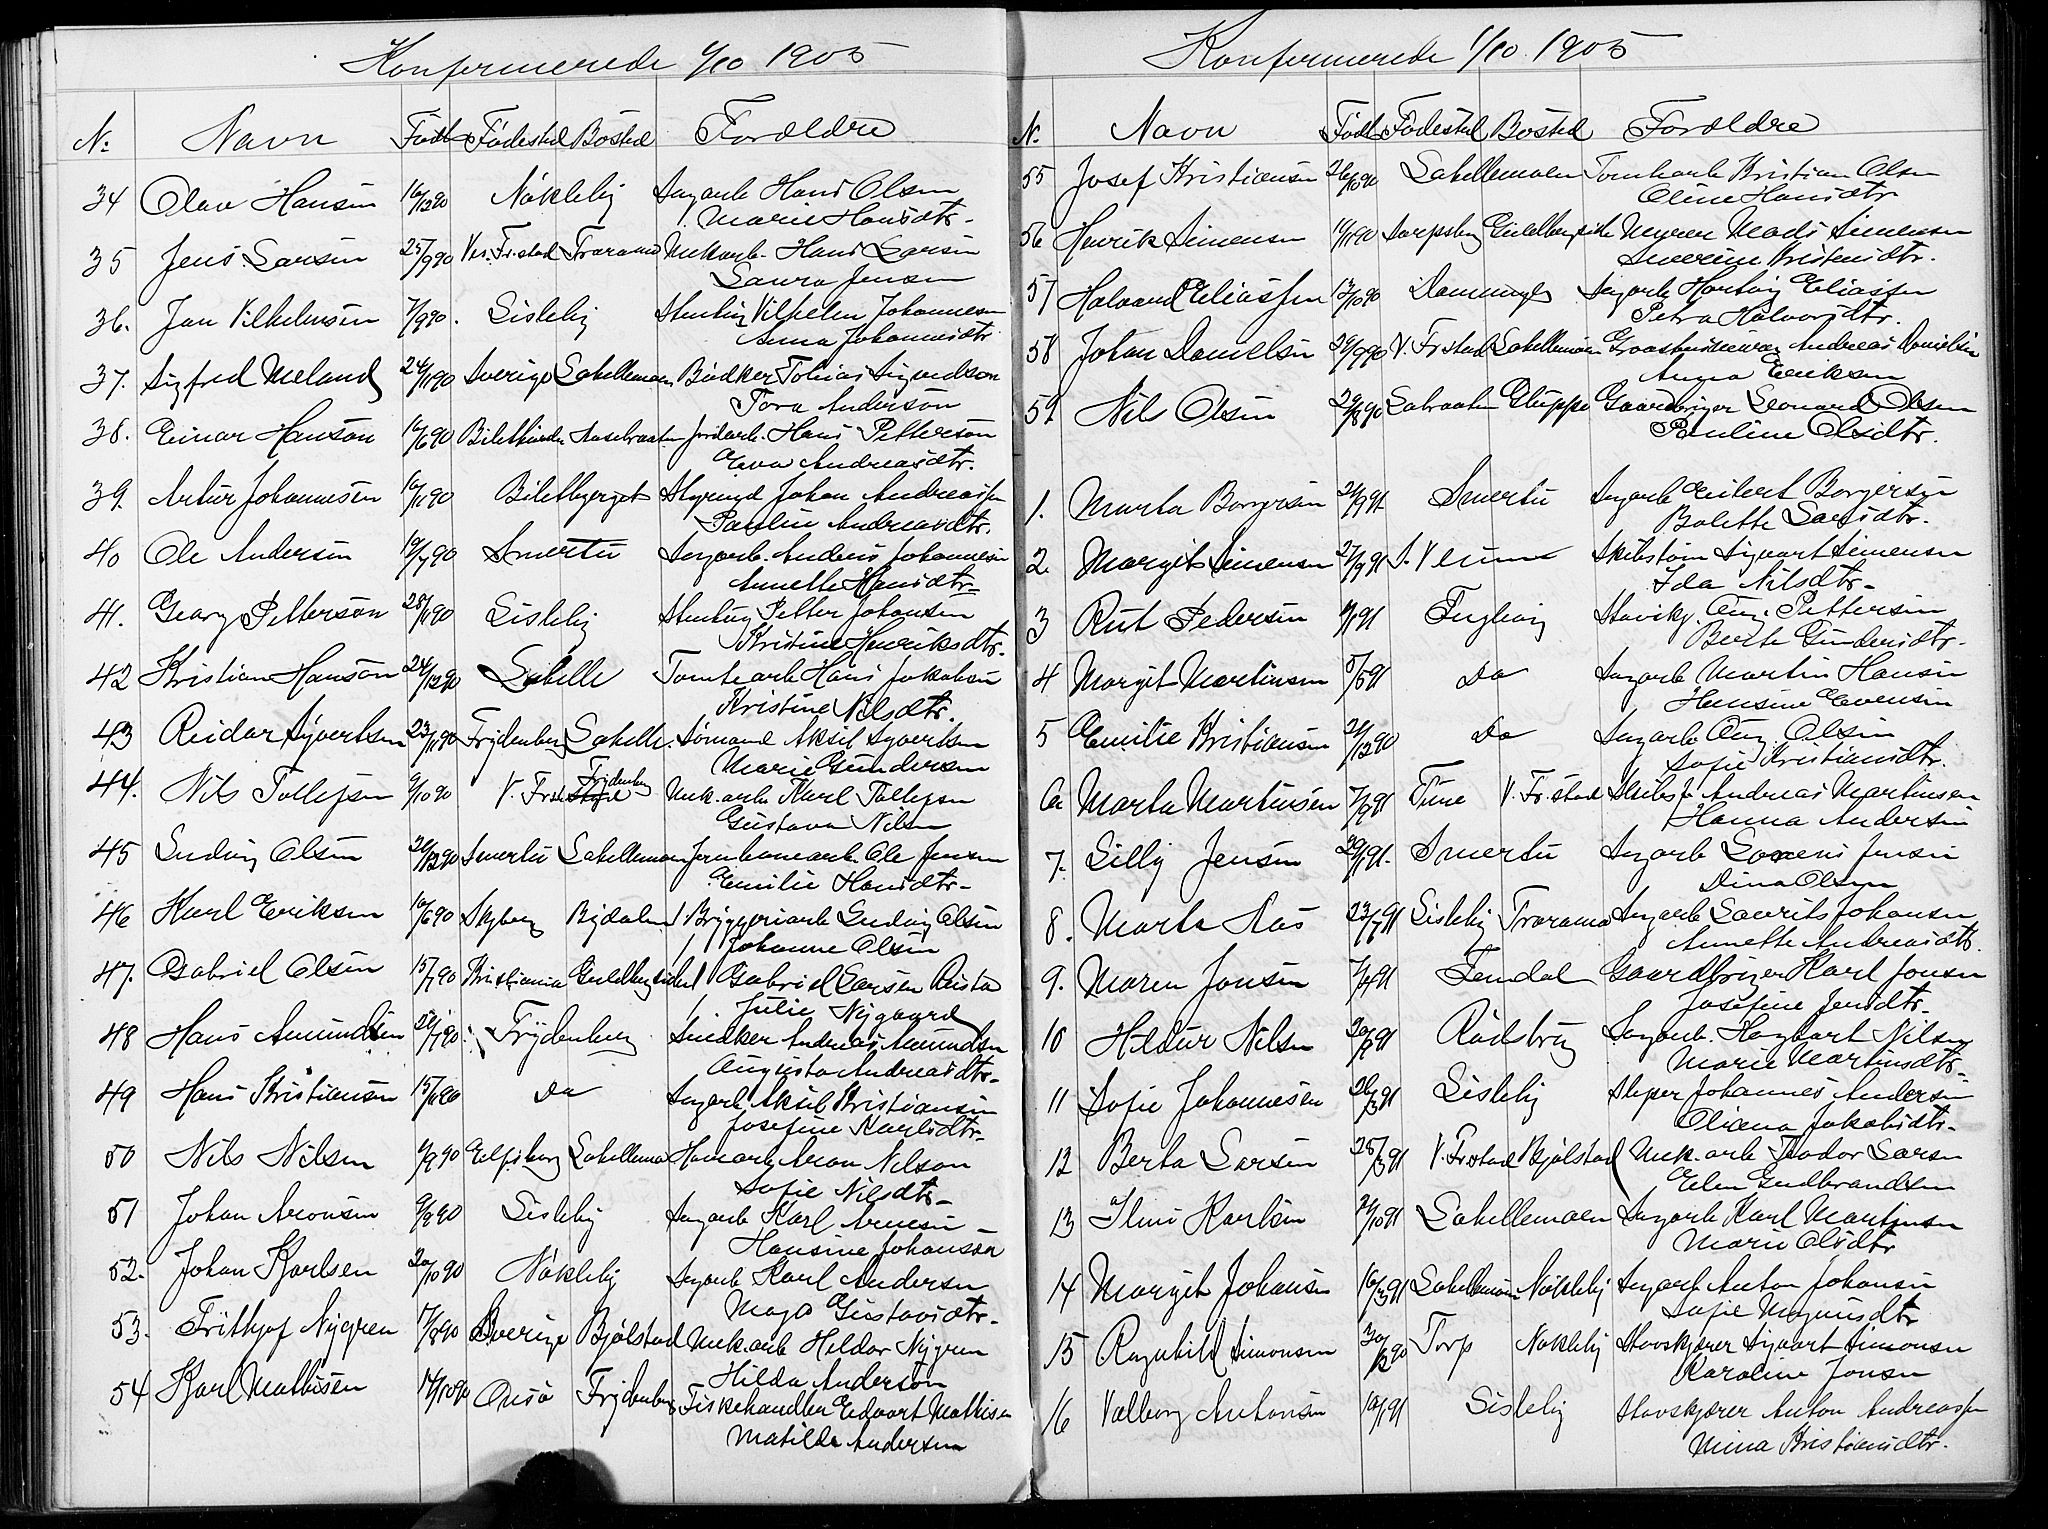 Konfirmerede 1/10 1905
N. Navn Født Fødested Bosted Forældre
34 Olav Hansen 16/12 90 Nøkleby Sagarb. Hans Olsen
Marie Hansdtr.
35 Jens Larsen 25/9 90 Ves. Fr.stad Trararud Mek.arb. Hans Larsen
Laura Jensen
36. Jan Vilhelmsen 7/9 90. Lisleby Stenhug. Vilhelm Johannesen
Anna Johannesdtr.
37. Sigfred Meland 24/11 90 Sverige Lahellemoen Bødker Tobias Sigurdson
Tora Anderson
38. Einar Hanson 10/6 90 Jordarb. Hans Petterson
Eva Andreasdtr.
39. Artur Johannesen 10/11 90 Biletbyerget Styrmd Johan Andreassen
Pauline Andreasdtr.
40 Ole Andersen 19/7 90 Smertu Sagarb. Anders Johannesen
Annette Hansdtr.
41. Georg Petterson 28/11 90 Lisleby Stenhug Petter Johansen
Kristine Henriksdtr.
42 Kristian Hanson 24/12 90 Lahelle Tomtearb Hans Jakobsen
Kristine Nilsdtr.
43 Reidar Syvertsen 23/11 90 Frydenberg Lahelle. Sømand Aksel Syvertsen
Marie Gundersen
44. Nils Tollefsen 9/10 90 V. Frst. Frydenberg Mek.arb Karl Tollefsen
Gustava Nilsen
45 Ludvig Olsen 20/12 90 Smertu Lahellemoen Jernbanearb. Ole Jensen
Emilie Hansdtr.
46 Karl Eriksen 10/6 90 Skjberg Rydalen Bryggeriarb Ludvig Olsen
Johanne Olsen
47. Gabriel Olsen 15/7 90 Kristiania Guldbergsiden Gabriel Larsen Reistad
Julie Nygaard
48 Hans Amundsen 20/7 90 Frydenberg Snedker Andreas Amundsen
Augusta Andreasdtr.
49 Hans Kristiansen 15/11 90 Do Sagarb. Aksel Kristiansen
Josefine Karlsdtr.
50 Nils Nilsen 6/9 90 Elfsborg Lahellemo Havnarb. Aron Nilson
Sofie Nilsdtr.
51 Johan Aronsen 9/9 90 Lisleby Sagarb Karl Arnesen
Hansine Johansen
52. Johan Karlsen 20/10 90 Nøkleby Sagarb Karl Andersen
Maja Gustavsdtr.
53. Frithjof Nygren 17/8 90 Sverige Bjølstad Mek.arb Heldor Nygren
Hilda Anderson
54 Karl Mathisen 14/10 90 Onsø Frydenberg Fiskehandler Edvart Mathisen
Matilde Andersen
Konfirmerede 1/10 1905
N. Navn Født Fødested Bosted Forældre
55 Josef Kristiansen 26/10 90 Lahellemoen Tomtearb Kristian Olsen
Oline Hansdtr
56 Henrik Simensen 11/11 90 Sarpsborg Guldbergside Murer Mads Simensen
Severine Kristensdtr.
57 Halvard Eliassen 13/10 90 Dammyr Sagarb Hartvig Eliassen
Petra Halvorsdtr.
58 Johan Danielsen 29/9 90 V. Frstad Lahellemoen Andreas Danielsen
Anna Eriksen
59. Nils Olsen 29/8 90 Labraaten Gluppe Gaardbruger Leonard Olsen
Pauline Olsdtr.
1. Marta Borgersen 21/7 91 Smertu Sagarb Eilert Borgersen
Bolette Larsdtr.
2. Margit Simensen 27/9 91 S. Verum Skibstøm Sigvart Simensen
Ida Nilsdtr.
3 Rut Pedersen 9/1 91 Fuglevig Stavskj. Aug. Pettersen
Berte Gundersdtr.
4 Margit Martinsen 5/5 91 Do Sagarb Martin Hansen
Hansine Evensen
5 Emilie Kristiansen 21/12 90 Do Sagarb Aug. Olsen
Sofie Kristiansdtr.
6 Marta Martinsen 7/9 91 Tune V. Fr.stad Andreas Martinsen
Hanna Andersen
7. Silly Jensen 29/1 91. Smertu Sagarb Lorens Jensen
Dina Olsen
8. Marta Aas 23/7 91 Lisleby Trararud Sagarb Laurits Johansen
Annette Andreasdtr.
9. Maren Jonsen 7/4 91 Femdal Gaardbruger Karl Jonsen
Josefine Jensdtr.
10 Hildur Nilsen 20/2 91 Rødsbrug Sagarb. Hagbart Nilsen
Marie Martinsdtr.
11 Sofie Johannesen 26/3 91 Lisleby Sliper Johannes Andersen
Oliana Jakobsdtr.
12 Berta Larsen 25/3 91 V. Frstad Bjølstad Mek.arb Teodor Larsen
Elen Gudbrandsen
13 Karlsen 21/10 91 Lahellemoen Sagarb Karl Martinsen
Marie Olsdtr
14 Margit Johansen 16/3 91 Lahellemoen Nøkleby Sagarb Anton Johansen
Sofie Magnusdtr
15 Ragnhild Simonsen 30/12 90 Torp Nøkleby Stavskjærer Sigvart Simonsen
Karoline Jonsen
16 Valborg Antonsen 10/1 91 Lisleby Stavskjærer Anton Andreassen
Mina Kristiansdtr.